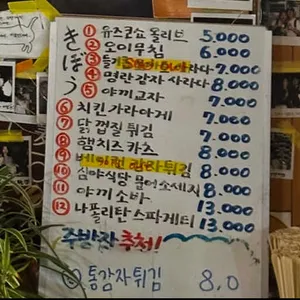 きぼう
① 유즈코쇼 올리브 5,000
② 오이무침 6,000
③ 들기 7,000
④ 명란감자 사라다 8,000
⑤ 야끼교자 7,000
⑥ 치킨가라아게 7,000
⑦ 닭껍질튀김 7,000
⑧ 햄치즈카츠 8,000
⑨ 튀김 8,000
⑩ 심야식당 문어소세지 8,000
⑪ 야끼소바 13,000
⑫ 나폴리탄스파게티 13,000
주방장 추천!
통감자튀김 8.0